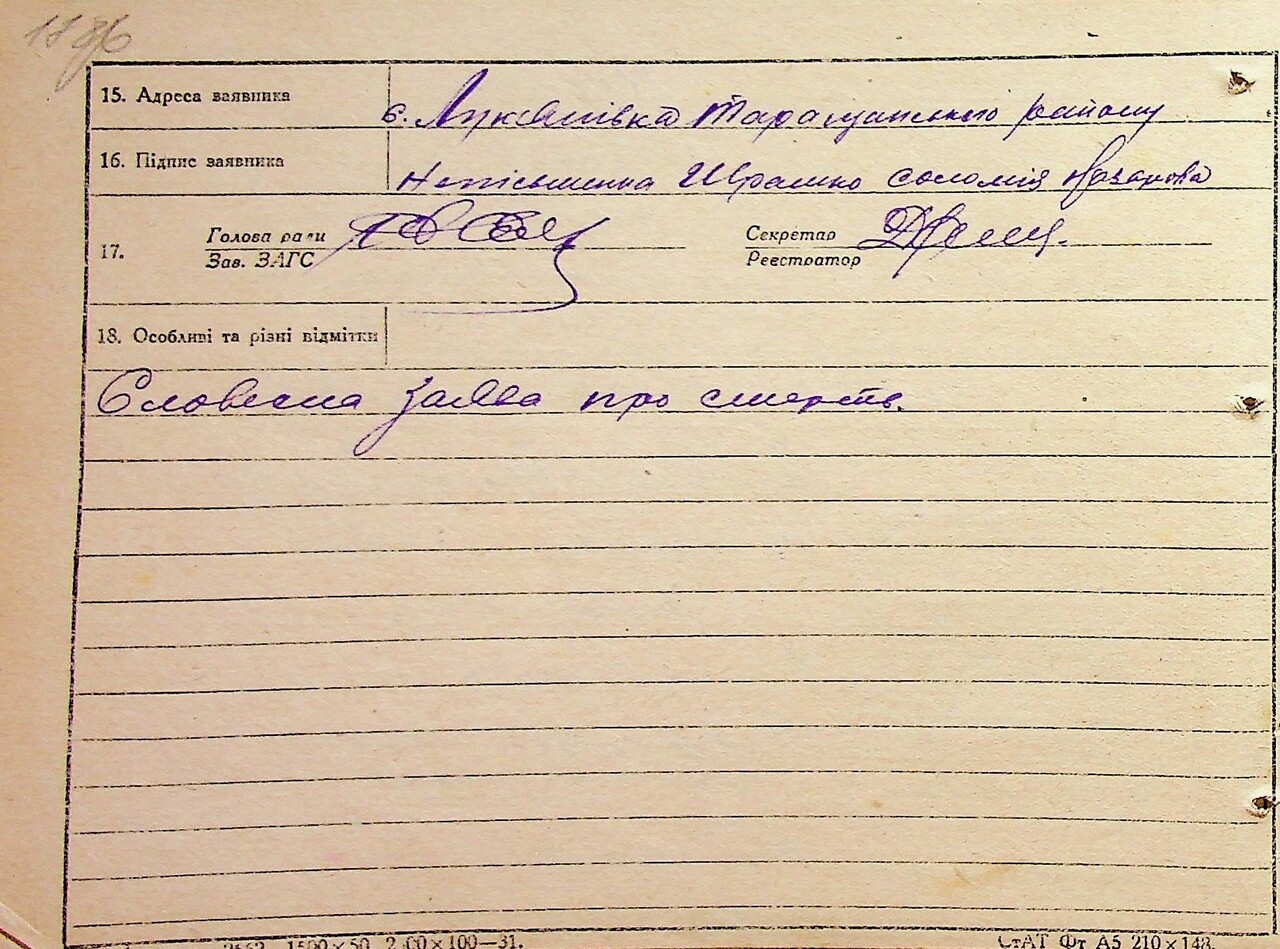 1886
15. Адреса заявника с. Лук'янівка Таращанського району
16. Підпис заявника Неписьменна Іврашко Соломія Назарова
17. Голова ради Секретар
Зав. ЗАГС Реєстратор
18. Особливі та різні відмітки
Словесна заява про смерть.
1500×50 2 00×100—31. СтАТ Фт А5 210×148